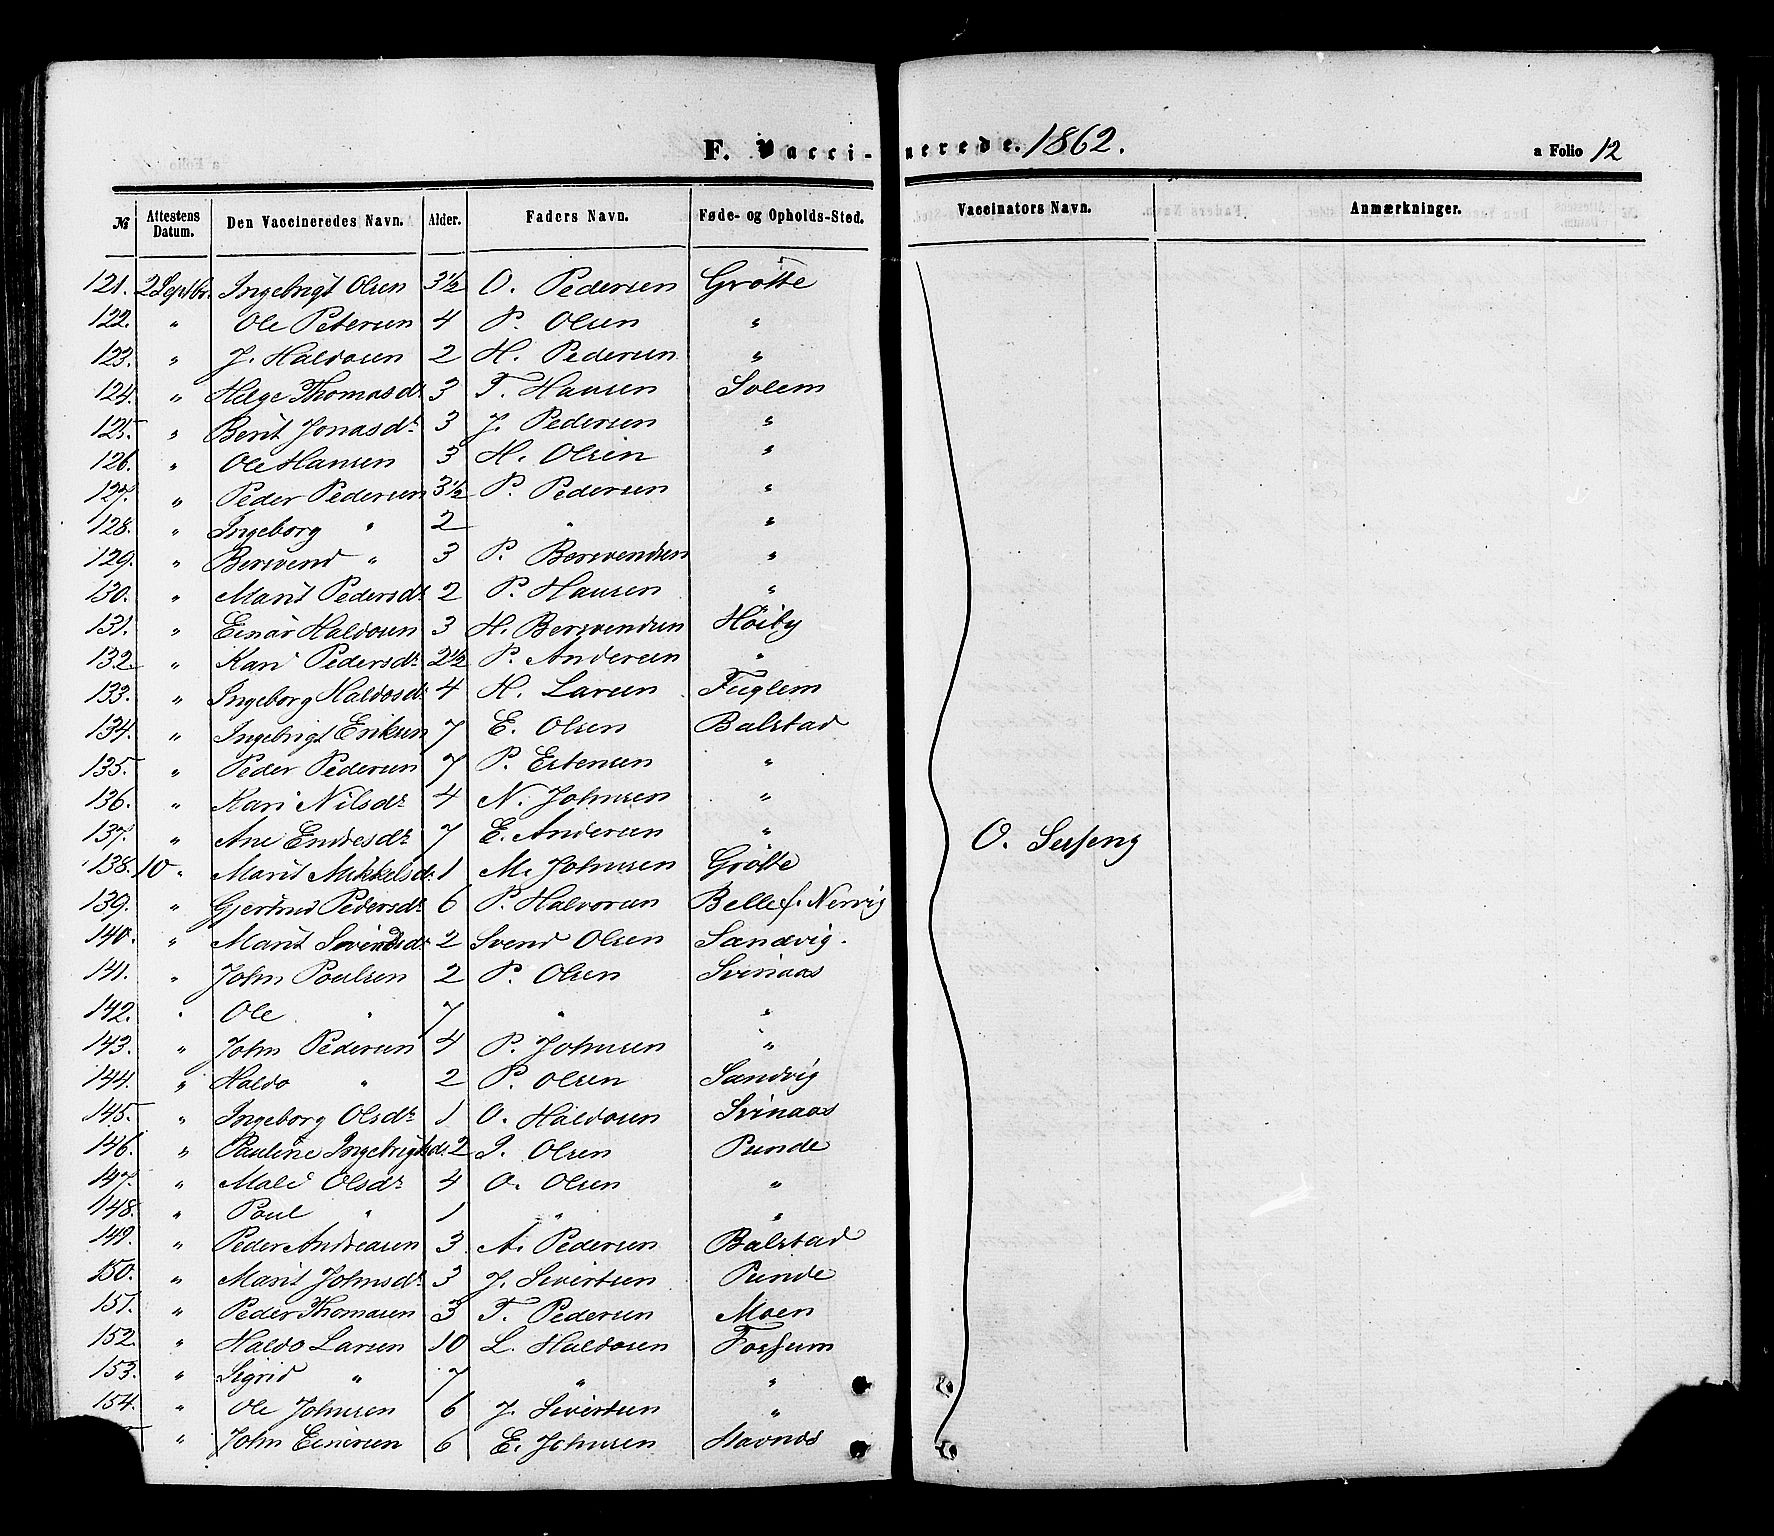 F. Vaccinerede. 1862. a Folio 12
№ Attestens Datum. Den Vaccineredes Navn. Alder. Faders Navn. Føde- og Opholds-Sted. Vaccinators Navn. Anmærkninger.
121. 2 Septbr. Ingebrigt Olsen 3½ O. Pedersen Grötte
122. " Ole Petersen 4 P. Olsen "
123. " J. Haldosen 2 H. Pedersen "
124. " Helge Thomasdr 3 T. Hansen Solem
125. " Berit Jonasdr 3 J. Pedersen "
126. " Ole Hansen 3 H. Olsen "
127. " Peder Pedersen 3½ P. Pedersen "
128. " Ingeborg " 2 " "
129. " Bersvend " 3 P. Bersvendsen "
130. " Marit Pedersdr 2 P. Hansen "
131. " Einar Haldosen 3 H. Bersvendsen Høiby
132. " Kari Pedersdr 2½ P. Andersen "
133. " Ingeborg Haldosdr 4 H. Larsen Fuglem
134. " Ingebrigt Eriksen 7 E. Olsen Balstad
135. " Peder Pedersen 7 P. Estensen "
136. " Kari Nilsdr 4 N. Johnsen "
137. " Ane Endresdr 7 E. Andersen " O.
138. 10 " Marit Mikkelsdr 1 M. Johnsen Grötte
139. " Gjertrud Pedersdr 6 P. Halvorsen Bellef. Nervig
140. " Marit Svendsdr 2 Svend Olsen Sandvig.
141. " John Poulsen 2 P. Olsen Svinaas
142. " Ole " 7 " "
143. " John Pedersen 4 P. Johnsen "
144. " Haldo " 2 P. Olsen Sandvig
145. " Ingeborg Olsdr 1 O. Haldosen Svinaas
146. " Pauline Ingebrigtsdr 2 I. Olsen Punde
147. " Mali Olsdr 4 O. Olsen "
148. " Poul " 1 " "
149. " Peder Andreasen 3 A. Pedersen Balstad
150. " Marit Johnsdr 3 J. Sivertsen Punde
151. " Peder Thomasen 3 T. Pedersen Moen
152. " Haldo Larsen 10 L. Haldosen Fossum
153. " Sigrid " 7 " "
154. " Ole Johnsen 6 J. Sivertsen "
" John Einersen 6 E. Johnsen Stavnes